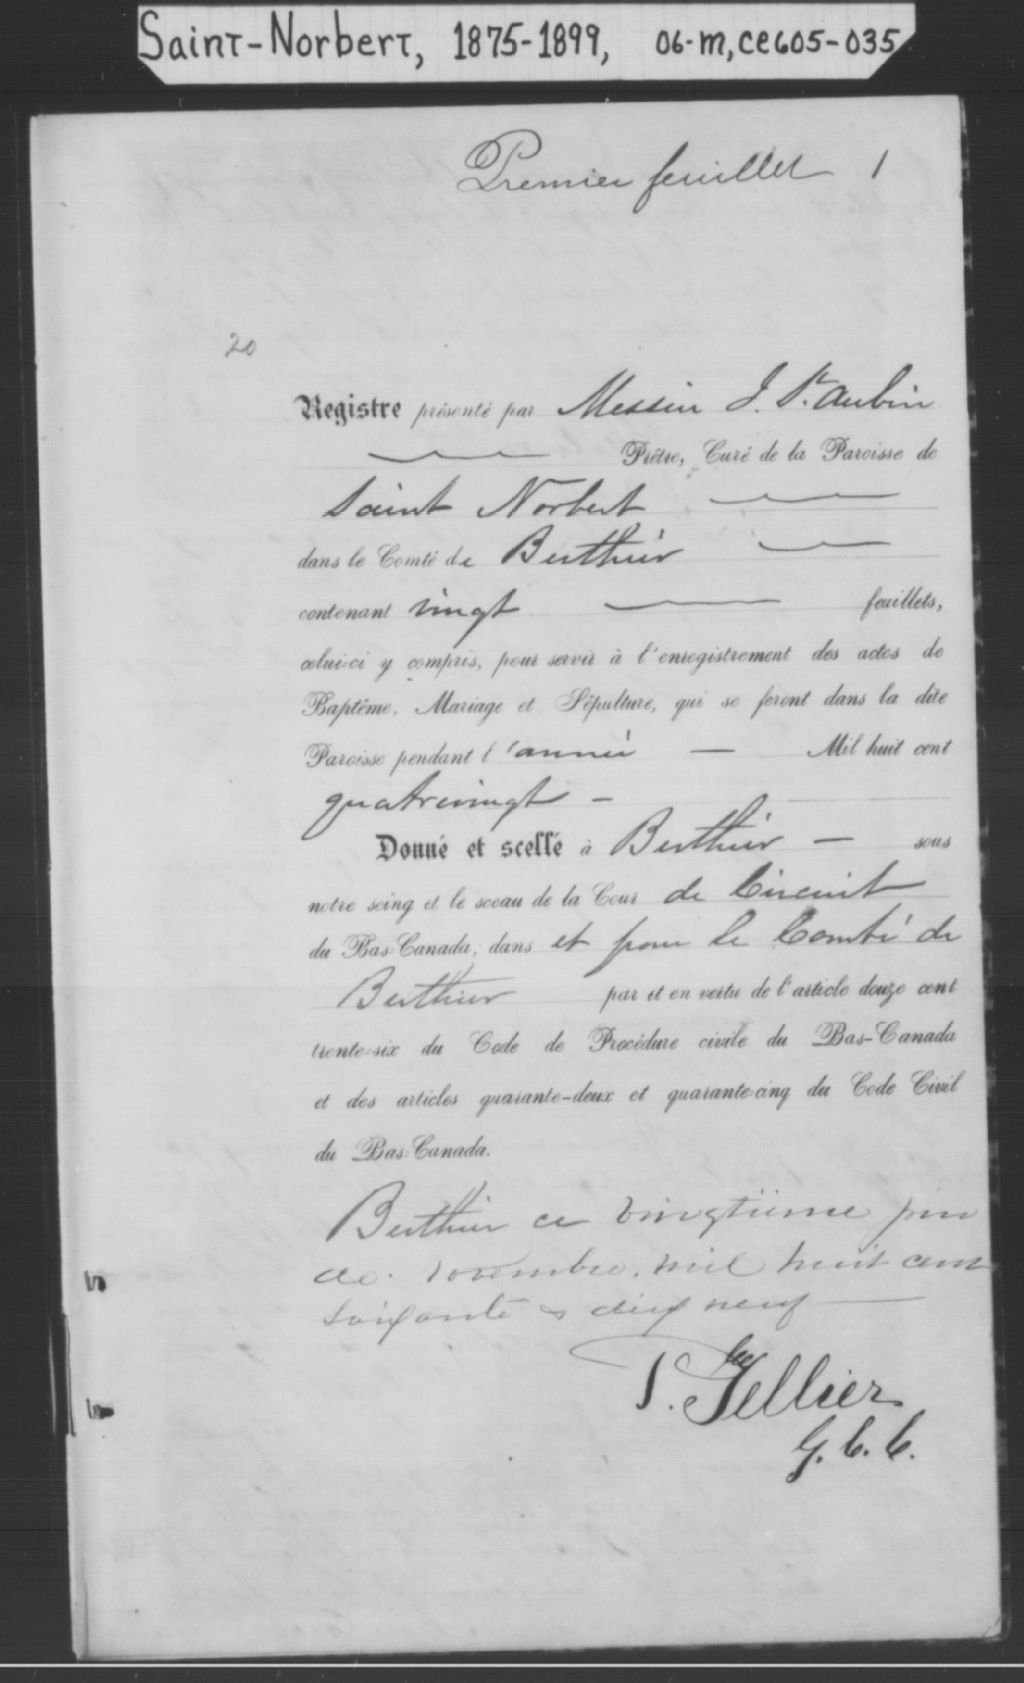 Saint-Norbert, 1875-1899, 06-M, CE605-035
Premier feuillet 1
20
Registre présenté par Messire J. St. Aubin
Prêtre, Curé de la Paroisse de
Saint Norbert
dans le Comté de Berthier
contenant vingt feuillets,
celui-ci y compris, pour servir à l'enregistrement des actes de
Baptême, Mariage et Sépulture, qui se feront dans la dite
Paroisse pendant l'année — Mil huit cent
quatrevingt -
Donné et scellé à Berthier — sous
notre seing et le sceau de la Cour de Circuit
du Bas-Canada, dans et pour le Comté de
Berthier par et en vertu de l'article douze cent
trente-six du Code de Procédure civile du Bas-Canada
et des articles quarante-deux et quarante-cinq du Code Civil
du Bas-Canada.
Berthier ce vingtième jour
de novembre mil huit cent
soixante & dix neuf
Tellier
G. C. C.